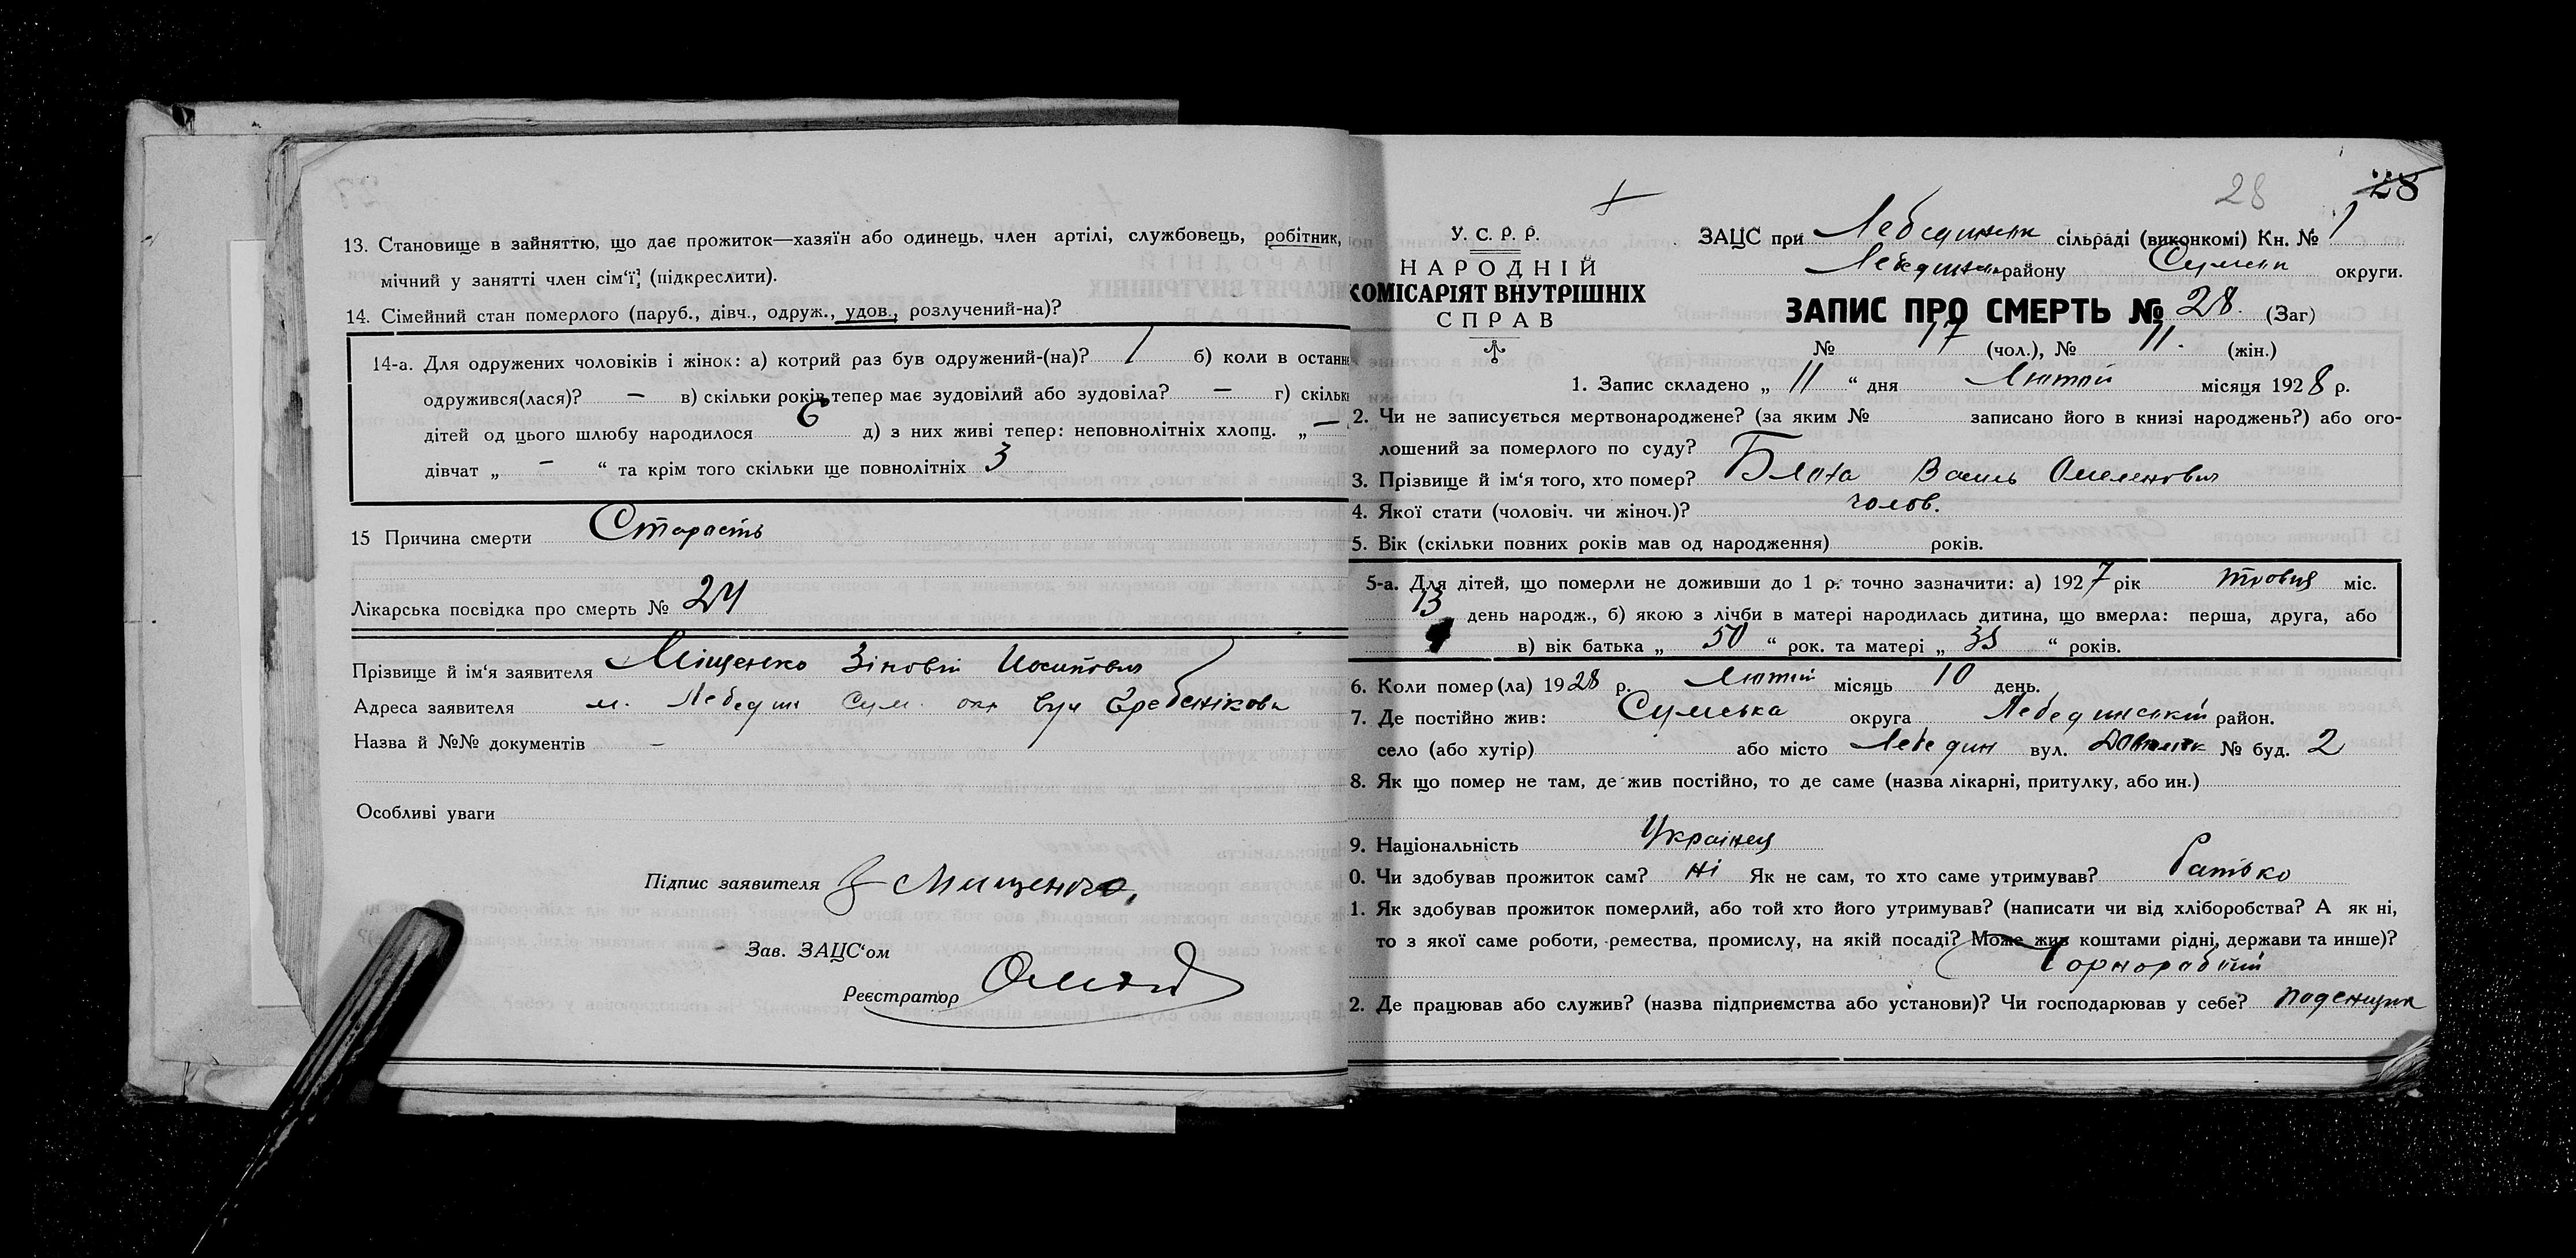 13. Становище в зайняттю, що дає прожиток—хазяїн або одинець, член артілі, службовець, робітник,
мічний у занятті член сім'ї, (підкреслити).
14. Сімейний стан померлого (паруб., дівч., одруж., удов., розлучений-на)?
14-а. Для одружених чоловіків і жінок: а) котрий раз був одружений-(на)? 1 б) коли в останнє
одружився(лася)? — в) скільки років тепер має зудовілий або зудовіла? — г) скільки
дітей од цього шлюбу народилося 6 д) з них живі тепер: неповнолітніх хлопц. „ —
дівчат „ — “ та крім того скільки ще повнолітніх 3
15 Причина смерти Старость
Лікарська посвідка про смерть № 24
Прізвище й ім'я заявителя Міщенко Зіновій Иосипович
Адреса заявителя м. Лебедин Сум. окр вул Гребенікова
Назва й №№ документів —
Особливі уваги
Підпис заявителя З Мищенко.
Зав. ЗАЦС'ом
Реєстратор
28 28
У. С. Р. Р.
НАРОДНІЙ
КОМІСАРІЯТ ВНУТРІШНІХ
СПРАВ
ЗАЦС при Лебединськ сільраді (виконкомі) Кн. № 1
Лебединськ району Сумськ округи.
ЗАПИС ПРО СМЕРТЬ № 28. (Заг)
№ 17 (чол.), № 11. (жін.)
1. Запис складено „ 11 “ дня Лютий місяця 1928 р.
2. Чи не записується мертвонароджене? (за яким № записано його в книзі народжень?) або ого-
лошений за померлого по суду?
3. Прізвище й ім'я того, хто помер? Блоха Василь Омелянович
4. Якої стати (чоловіч. чи жіноч.)? чолов.
5. Вік (скільки повних років мав од народження) років.
5-а. Для дітей, що померли не доживши до 1 р. точно зазначити: а) 1927 рік міс.
13 день народж., б) якою з лічби в матері народилась дитина, що вмерла: перша, друга, або
в) вік батька „ 50 “ рок. та матері „ 35 “ років.
6. Коли помер(ла) 1928 р. Лютий місяць 10 день.
7. Де постійно жив: Сумська округа Лебединський район.
село (або хутір) або місто Лебедин вул. № буд. 2
8. Як що помер не там, де жив постійно, то де саме (назва лікарні, притулку, або ин.)
9. Національність Українец
0. Чи здобував прожиток сам? ні Як не сам, то хто саме утримував? Батько
1. Як здобував прожиток померлий, або той хто його утримував? (написати чи від хліборобства? А як ні,
то з якої саме роботи, ремества, промислу, на якій посаді? Може жив коштами рідні, держави та инше)?
Чорноробочий
2. Де працював або служив? (назва підприємства або установи)? Чи господарював у себе? поденщик